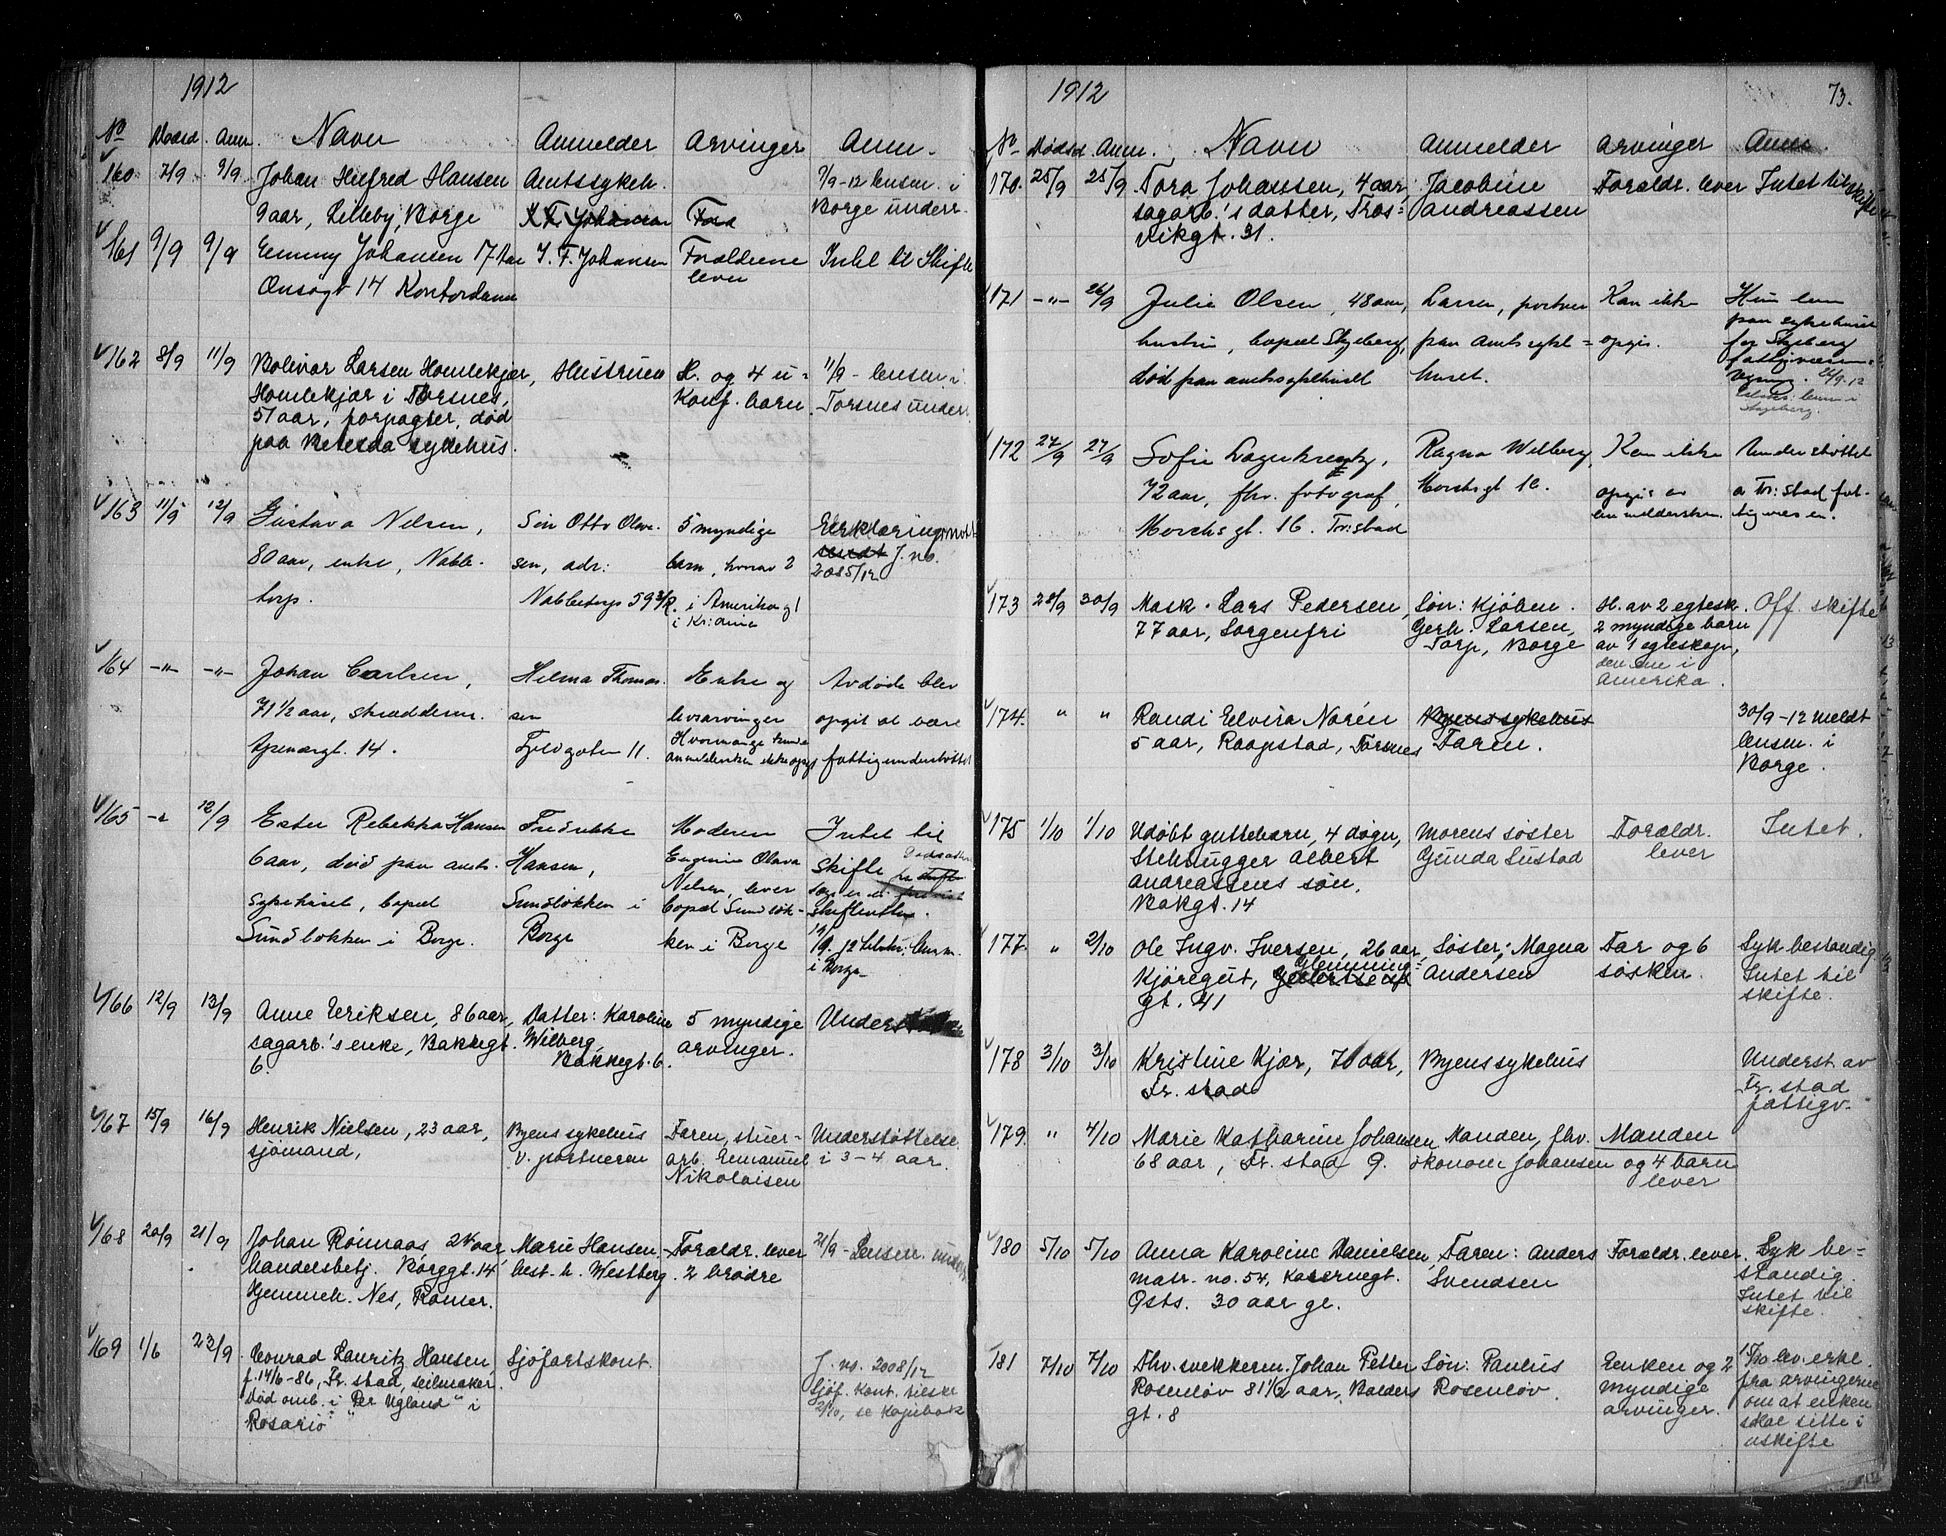 1912
No Dødsd. Anm. Navn Anmelder Arvinger Anm.
160 7/9 9/9 Johan Hilfred Hansen Amtssykeh. 9/9-12 lensm. i
9 aar, Lilleby, Borge Borge underr.
161 9/9 9/9 Emmy Johansen 17 aar J. F. Johansen Forældrene Intet til Skifte
Onsøgt 14 Kontordame lever
162 8/9 11/9 Bolivar Larsen Homlekjær, Hustruen H. og 4 u- 11/9 - lensm. i
Homlekjær i Torsnes, Konf. barn. Torsnes underr.
51 aar, forpagter, død
paa Betesda sykehus.
163 11/9 12/9 Gustava Nilsen, Søn Otto Olav- 5 myndige Erklæring mott.
80 aar, enke, Nable- sen, adr: barn, hvorav 2 sendt J. no.
torp. Nabbetorp 59 i Amerika og 1 2085/12
i Kr:ania
164 -"- -"- Johan Carlsen, Helma Thomas- Enke og Avdøde blev
71 1/2 aar, skrædderm. sen livsarvinger opgit at være
Gpenørgt. 14. Fjeldgaten 11. Hvormange kunde fattigunderstøttet
anmeldersken ikke opgi
165 -"- 12/9 Ester Rebekka Hansen Fredrikke Moderen Intet til
6 aar, død paa amts- Hansen, Eugenie Olava skifte
sykehuset, bopæl Sundløkken i Nilsen, lever
Sundløkken i Borge. Borge bopæl Sundløk- skifteretten.
ken i Borge 19/9.12 lensm.
i Borge
166 12/9 13/9 Anne Eriksen, 86 aar, Datter: Karoline 5 myndige
sagarb.'s enke, Bakkegt. Wilberg, arvinger.
6. Bakkegt. 6.
167 15/9 16/9 Henrik Nielsen, 23 aar, Byens sykehus Faren, stuer- Understøttelse
sjømand, v. portneren arb. Emanuel i 3-4 aar.
Nikolaisen
168 20/9 21/9 Johan Römaas, 24 aar, Marie Hansen, Forældr. lever 21/9 - Lensm. underr.
handelsbetj. Borggt. 14, best. h. Westberg. 2 brødre
Hjemmeh. Nes, Romer.
169 1/6 23/9 Conrad Lauritz Hansen, Sjöfartskont. J. no. 2008/12
f. 14/6-86, Fr.stad, seilmaker, Sjöf. Kont. tilske
Død omb. i "Per Ugland" i 2/10, se Kopibok
Rosario
1912 73.
No Dødsd. Anm. Navn Anmelder Arvinger Anm.
170 25/9 25/9 Tora Johanssen, 4 aar, Jacobine Forældr. lever Intet til skifte
sagarb.'s datter, Tros- Andreassen
vikgt. 31.
171 -"- 26/9 Julie Olsen, 48 aar, Larsen, portner Kan ikke Hun lever
hustru, bopæl Skjeberg, paa Amtssyke- opgis. paa sykehuset
død paa amtssykehuset huset. for Skjeberg
fattigvæsens
regning. 26/9.12
Skjeberg.
172 27/9 27/9 Sofie Lagerkrantz, Ragna Wilberg, Kan ikke Understøttet
72 aar, fhv. fotograf, Morchsgt. 16. opgis av av Fr:stad fat-
Morchsgt. 16. Fr:stad anmeldersken. tigvæsen.
173 28/9 30/9 Mask. Lars Pedersen, Søn: Kjøbm. H. av 2 egtesk. Off. skifte
77 aar, Sorgenfri Gerh. Larsen, 2 myndige barn
Torp, Borge av 1 egteskap,
den ene i
Amerika.
174. " " Randi Elvira Norén Byens sykehus 30/9-12 meldt
5 aar, Raapstad, Torsnes Faren. lensm. i
Borge.
175 1/10 1/10 Udöbt guttebarn, 4 døger, Morens søster Forældr. Intet.
Stenhugger Albert Gunda Sustad lever
Andreassens søn,
Bakgt. 14
177. " 2/10 Ole Ingv. Iversen, 26 aar, Søster: Magna Far og 6 Syk bestandig
Kjøregut, Glemming- Andersen søsken. Intet til
gt. 41 skifte.
178 3/10 3/10 Kristine Kjær, 70 aar, Byens sykehus Underst. av
Fr.stad Fr.stad
fattigv.
179. " 4/10 Marie Katharine Johansen Manden, fhv. Manden
68 aar, Fr.stad 9. økonom Johansen og 4 barn
lever
180 5/10 5/10 Anna Karoline Danielsen, Faren: Anders Forældr. lever. Syk be-
matr. no. 54, Kasernegt. Svendsen standig.
Østs. 30 aar gl. Intet til
skifte.
181 7/10 7/10 Fhv. snekkerm. Johan Petter Søn: Paulus Enken og 2 15/10 lev. erkl.
Rosenlöv 81 1/2 aar, Balders Rosenlöv. myndige fra arvingerne
gt. 8 arvinger. om at enken
skal sitte i
uskifte